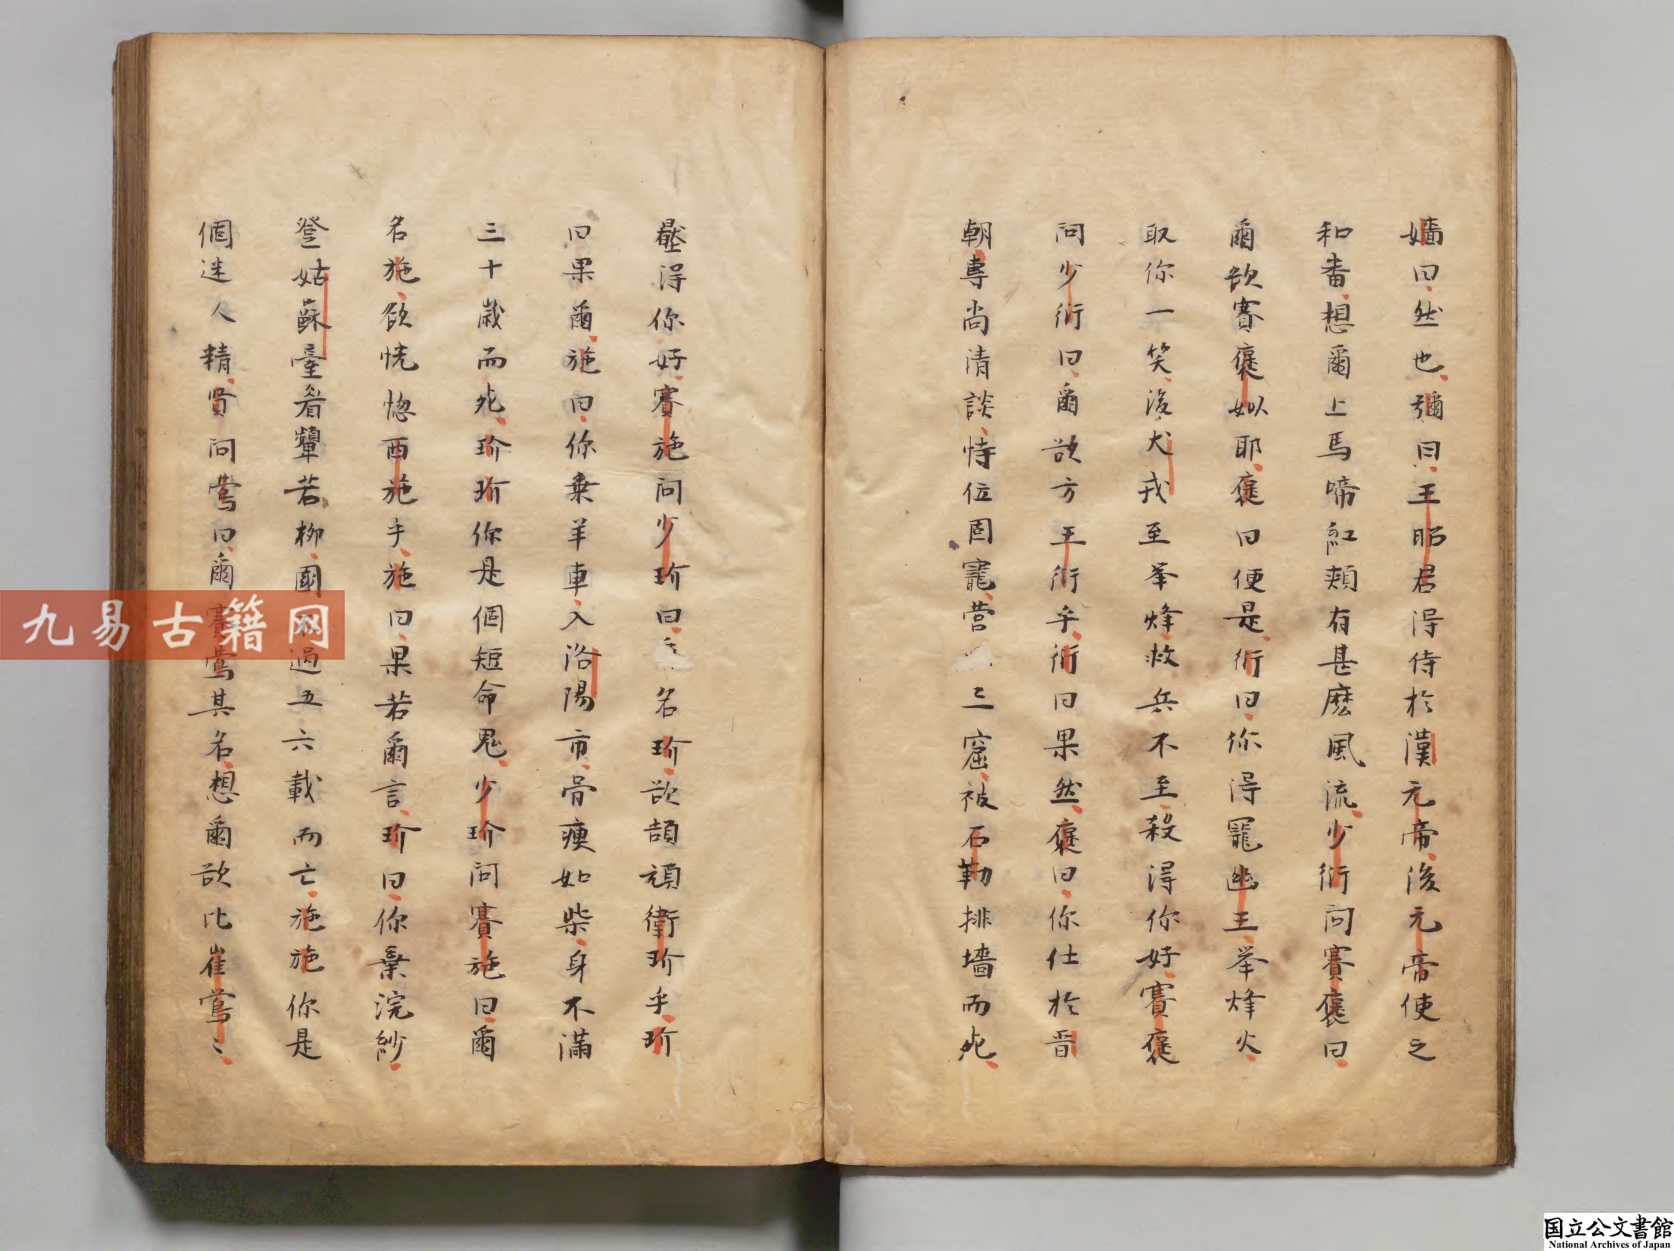 嬙曰然也彌曰王昭君得侍於漢元帝後元帝使之
和番想爾上馬啼紅頰有甚麽風流少衍問賽褒曰
爾欲賽褒姒耶褒曰便是衍曰你得寵幽王举烽火
取你一笑後犬戎至举烽救兵不至殺得你好賽褒
问少衍曰爾欲方王衍乎衍曰果然褒曰你仕於晋
朝專尚清談恃位固寵营三窟被石勒排墻而死
壓得你好賽施问少玠曰名玠欲頡頏衛玠乎玠
曰果爾施曰你乗羊車入洛陽市骨瘦如柴身不滿
三十歳而死玠玠你是個短命鬼少玠问賽施曰爾
名施欲恍惚西施乎施曰果若爾言玠曰你棄浣紗
登姑蘇臺眉顰若柳國過五六載而亡施施你是
個迷人精賢问鶯曰爾賽鶯其名想爾欲比崔鶯〻
九易古籍网
国立公文書館
National Archives of Japan